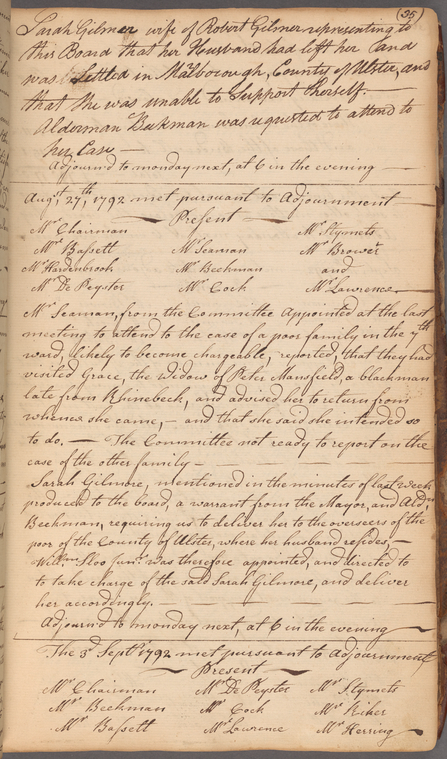 (35)
Sarah Gilmer wife of Robert Gilmer representing to
this Board that her Husband had left her and
was Settled in Malborough, County of Ulster, and
that She was unable to Support herself. —
Alderman Beekman was requested to attend to
her Case —
Adjournd to monday next, at 6 in the evening —
Augst 27th, 1792 met pursuant to Adjournment
Present
Mr Chairman Mr Stymets
Mr Bassett Mr Seaman Mr Brower
Mr Hardenbrook Mr Beekman and
Mr De Peyster Mr Cock Mr Lawrence
Mr Seaman, from the Committee Appointed at the last
meeting to attend to the case of a poor family in the 7th
ward, likely to become chargeable, reported, that they had
visited Grace, the Widow of Peter Mansfield, a blackman
late from Rhinebeck, and advised her to return from
whence she came, — and that she said she intended so
to do. — The Committee not ready to report on the
case of the other family —
Sarah Gilmore, mentioned in the minutes of last week
produced to the board, a warrant from the Mayor, and Aldn
Beekman, requiring us to deliver her to the overseers of the
poor of the County of Ulster, where her husband resides, —
Willm Sloo junr was therefore appointed, and directed to
to take charge of the said Sarah Gilmore, and deliver
her accordingly. —
Adjournd to monday next, at 6 in the evening
The 3d Septr 1792 met pursuant to Adjournment
Present
Mr Chairman Mr De Peyster Mr Stymets
Mr Beekman Mr Cock Mr Riker
Mr Bassett Mr Lawrence Mr Herring